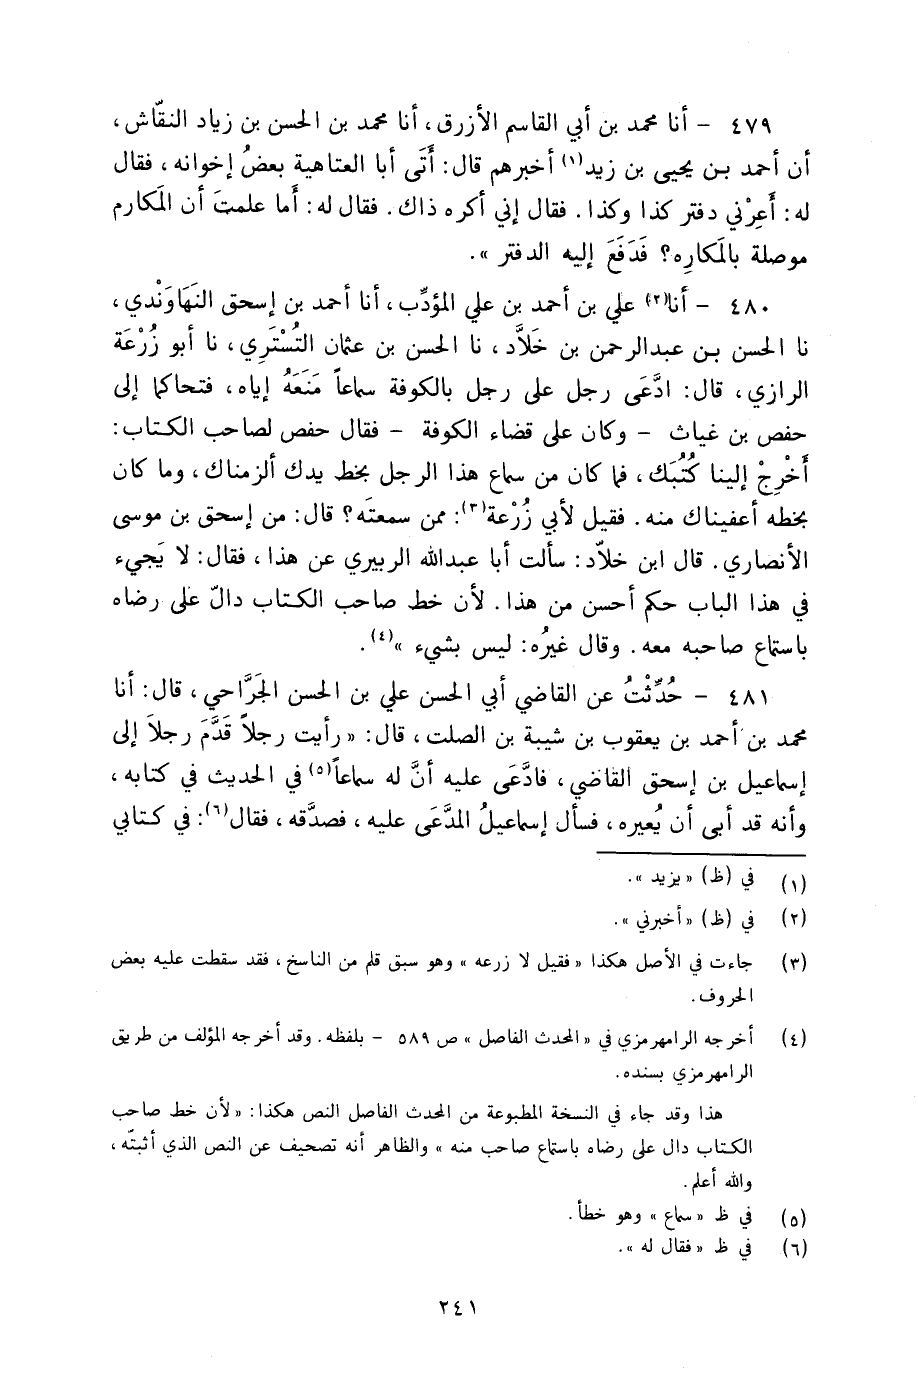 ٤٧٩ - أنا محمد بن أبي القاسم الأزرق، أنا محمد بن الحسن بن زياد النقّاش،
أن أحمد بن يحيى بن زيد(١) أخبرهم قال: أَتَى أبا العتاهية بعضُ إخوانه، فقال
له: أَعِرْني دفتر كذا وكذا. فقال إني أكره ذاك. فقال له: أَما علمتَ أن المَكارم
موصلة بالمَكارِه؟ فَدَفَعَ إليه الدفتر ».
٤٨٠ - أنا(٢) علي بن أحمد بن علي المؤدِّب، أنا أحمد بن إسحق النَهَاوَنْدي،
نا الحسن بن عبدالرحمن بن خَلاَّد، نا الحسن بن عثمان التُسْتَرِي، نا أبو زُرْعَة
الرازي، قال: ادَّعَى رجل على رجل بالكوفة سماعاً مَنَعَهُ إياه، فتحاكما إلى
حفص بن غياث - وكان على قضاء الكوفة - فقال حفص لصاحب الكتاب:
أَخْرِجْ إلينا كُتُبَك، فما كان من سماع هذا الرجل بخط يدك ألزمناك، وما كان
بخطه أعفيناك منه. فقيل لأبي زُرْعة(٣): ممن سمعتَه؟ قال: من إسحق بن موسى
الأنصاري. قال ابن خلاّد: سألت أبا عبدالله الزبيري عن هذا، فقال: لا يَجيء
في هذا الباب حكم أحسن من هذا. لأن خط صاحب الكتاب دالّ على رضاه
باستماع صاحبه معه. وقال غيرُه: ليس بشيء »(٤).
٤٨١ - حُدِّثْتُ عن القاضي أبي الحسن علي بن الحسن الجَرَّاحي، قال: أنا
محمد بن أحمد بن يعقوب بن شيبة بن الصلت، قال: « رأيت رجلاً قَدَّمَ رجلاً إلى
إسماعيل بن إسحق القاضي، فادَّعَى عليه أنَّ له سماعاً(٥) في الحديث في كتابه،
وأنه قد أبى أن يُعيره، فسأل إسماعيلُ المدَّعَى عليه، فصدَّقه، فقال(٦): في كتابي
(١) في (ظ) « يزيد ».
(٢) في (ظ) « أخبرني ».
(٣) جاءت في الأصل هكذا « فقيل لا زرعه » وهو سبق قلم من الناسخ، فقد سقطت عليه بعض
الحروف.
(٤) أخرجه الرامهرمزي في « المحدث الفاصل » ص ٥٨٩ - بلفظه. وقد أخرجه المؤلف من طريق
الرامهرمزي بسنده.
هذا وقد جاء في النسخة المطبوعة من المحدث الفاصل النص هكذا: « لأن خط صاحب
الكتاب دال على رضاه باستماع صاحب منه » والظاهر أنه تصحيف عن النص الذي أثبتّه،
والله أعلم.
(٥) في ظ « سماع » وهو خطأ.
(٦) في ظ « فقال له ».
٢٤١